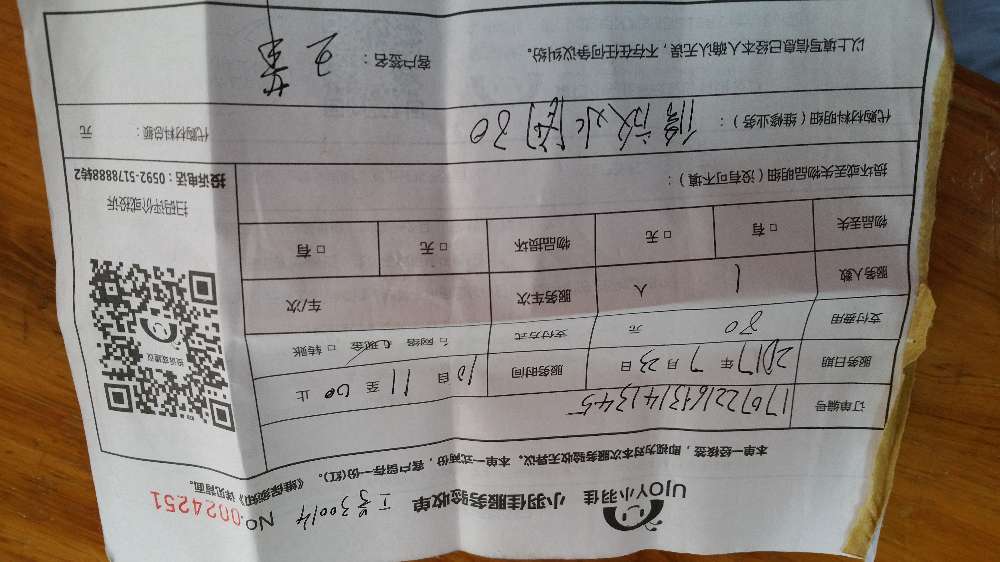 UJOY小羽佳 小羽佳服务验收单 工号30014 NO.0024251
本单一经核签，即视为对本次服务验收无异议。本单一式两份，客户留存一份(红)。《维保须知》详见背面。
订单编号 1707221643141345
服务日期 2017年7月23日 服务时间 10自11至00止
支付费用 80元 支付方式 □网络 □现金 □转账
服务人数 1人 服务车次 车/次
物品丢失 □有 □无 物品损坏 □无 □有
损坏或丢失物品明细（没有可不填）：
代购材料明细（维修业务）： 代购材料总额： 元
以上填写信息已经本人确认无误，不存在任何争议纠纷。 客户签名：
投诉或建议
扫码评价或投诉
投诉电话：0592-5178888转2